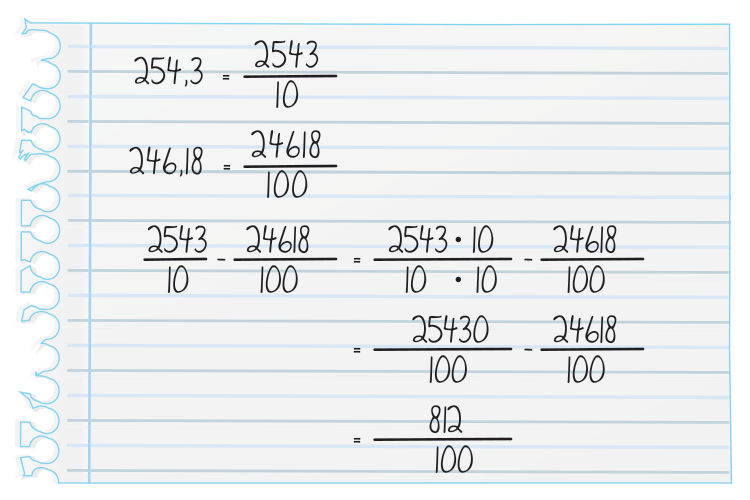 254,3 = 2543/10
246,18 = 24618/100
2543/10 - 24618/100 = 2543 · 10/10 · 10 - 24618/100
= 25430/100 - 24618/100
= 812/100